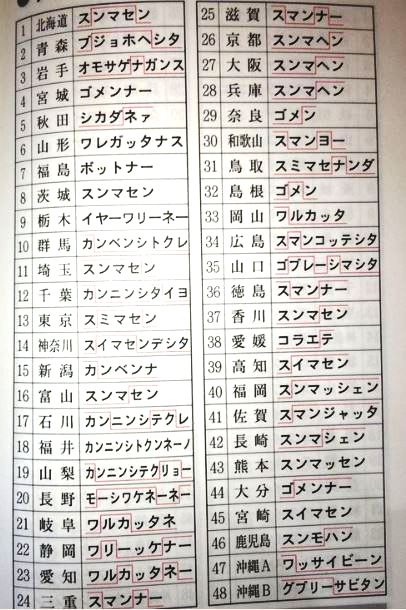 1 北海道 スンマセン
2 青森 ブジョホヘシタ
3 岩手 オモサゲナガンス
4 宮城 ゴメンナー
5 秋田 シカダネァ
6 山形 ワレガッタナス
7 福島 ボットナー
8 茨城 スンマセン
9 栃木 イヤーワリーネー
10 群馬 カンベンシトクレ
11 埼玉 スンマセン
12 千葉 カンニンシタイヨ
13 東京 スミマセン
14 神奈川 スイマセンデシタ
15 新潟 カンベンナ
16 富山 スンマセン
17 石川 カンニンシテクレ
18 福井 カンニンシトクンネーノ
19 山梨 カンニンシテクリョー
20 長野 モーシワケネーネー
21 岐阜 ワルカッタネ
22 静岡 ワリーッケナー
23 愛知 ワルカッタネー
24 三重 スマンナー
25 滋賀 スマンナー
26 京都 スンマヘン
27 大阪 スンマヘン
28 兵庫 スンマヘン
29 奈良 ゴメン
30 和歌山 スマンヨー
31 鳥取 スミマセナンダ
32 島根 ゴメン
33 岡山 ワルカッタ
34 広島 スマンコッテシタ
35 山口 ゴブレーシマシタ
36 徳島 スマンナー
37 香川 スンマセン
38 愛媛 コラエテ
39 高知 スイマセン
40 福岡 スンマッシェン
41 佐賀 スマンジャッタ
42 長崎 スンマシェン
43 熊本 スンマッセン
44 大分 ゴメンナー
45 宮崎 スイマセン
46 鹿児島 スンモハン
47 沖縄A ワッサイビーン
48 沖縄B グブリーサビタン